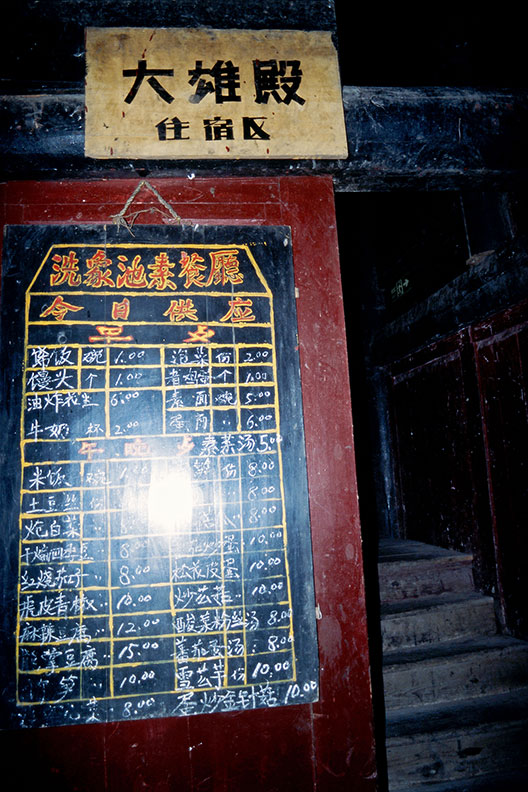 大雄殿
住宿区
洗象池素餐厅
今日供应
早点
稀饭 碗 1.00 泡菜 份 2.00
馒头 个 1.00 个 1.00
油炸花生 6.00 素面 碗 5.00
牛奶 杯 2.00 蛋面 〃 6.00
午晚 素菜汤 5.00
米饭 碗 1.00 份 8.00
土豆丝 份 8.00
炝白菜 8.00
干煸四季豆 8 炒蛋 10.00
红烧茄子 〃 8.00 皮蛋 10.00
虎皮青椒 〃 10.00 炒 10.00
麻辣豆腐 12.00 酸菜粉丝汤 8.00
熊掌豆腐 15.00 蕃茄蛋汤 〃 8.00
笋 〃 10.00 雪芋 〃 10.00
8.00 蛋炒金针菇 10.00